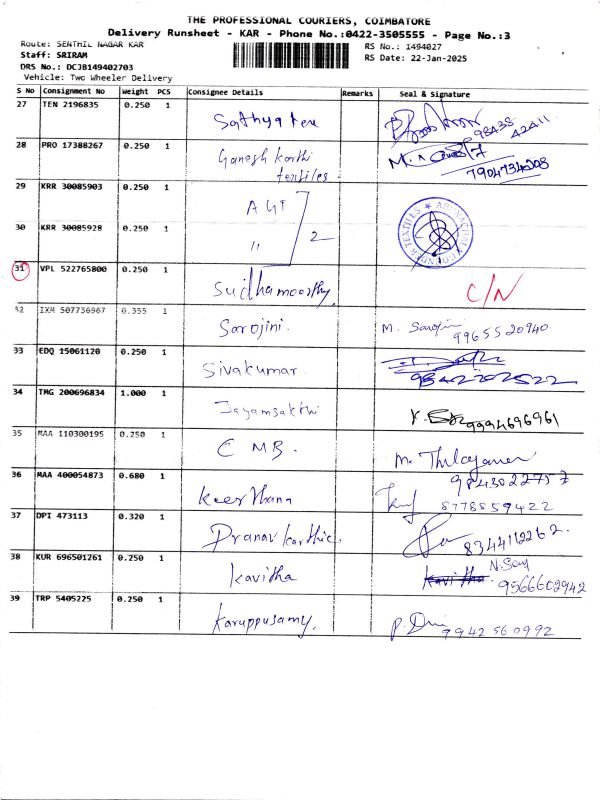 THE PROFESSIONAL COURIERS, COIMBATORE
Delivery Runsheet - KAR - Phone No.:0422-3505555 - Page No.:3
Route: SENTHIL NAGAR KAR RS No.: 1494027
Staff: SRIRAM RS Date: 22-Jan-2025
DRS No.: DCJB149402703
Vehicle: Two Wheeler Delivery
S No Consignment No Weight PCS Consignee Details Remarks Seal & Signature
27 TEN 2196835 0.250 1 Sathya tex 98438 42411
28 PRO 17388267 0.250 1 Ganesh karthi textiles 7904734208
29 KRR 30085903 0.250 1 AGT
30 KRR 30085928 0.250 1 " 2
31 VPL 522765800 0.250 1 Sudhamoorthy C/N
32 IXM 507736967 0.355 1 Sarojini. M. Sarojini 9965520940
33 EDQ 15061120 0.250 1 Sivakumar 9842202522
34 TMG 200696834 1.000 1 Jayamsakthi 9994696961
35 MAA 110300195 0.250 1 C MB. 9843022757
36 MAA 400054873 0.680 1 Keerthana 8778559422
37 DPI 473113 0.320 1 Pranav karthic. 8344112262.
38 KUR 696501261 0.250 1 kavitha kavitha 9566602942
39 TRP 5405225 0.250 1 Karuppusamy. 9942560992